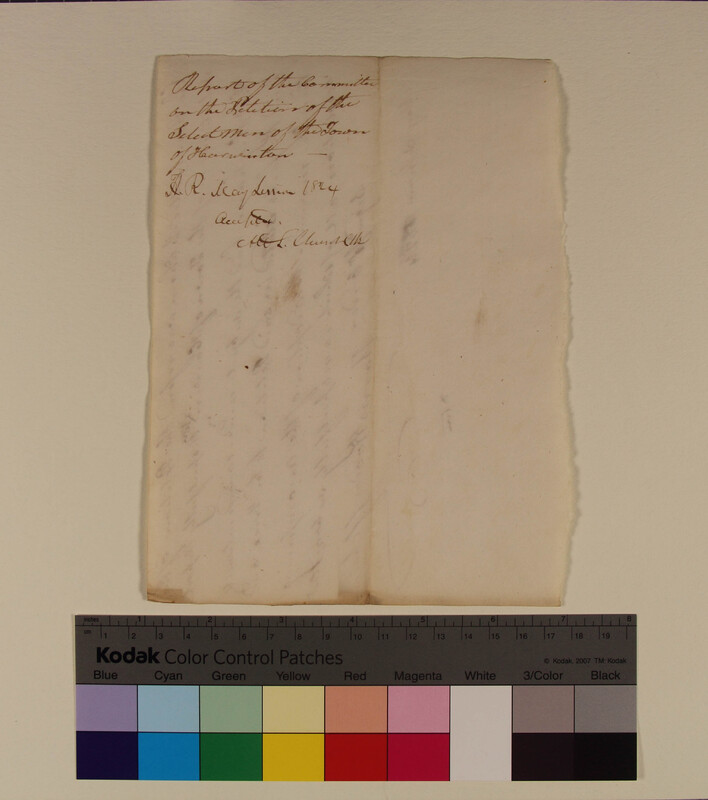 Report of the Committee
on the Petition of the
Select Men of the Town
of Harwinton —
H. R. May Session 1824
Acc
Att S. Church Clk
inches 1 2 3 4 5 6 7 8
cm 1 2 3 4 5 6 7 8 9 10 11 12 13 14 15 16 17 18 19
Kodak Color Control Patches
© Kodak, 2007 TM: Kodak
Blue Cyan Green Yellow Red Magenta White 3/Color Black